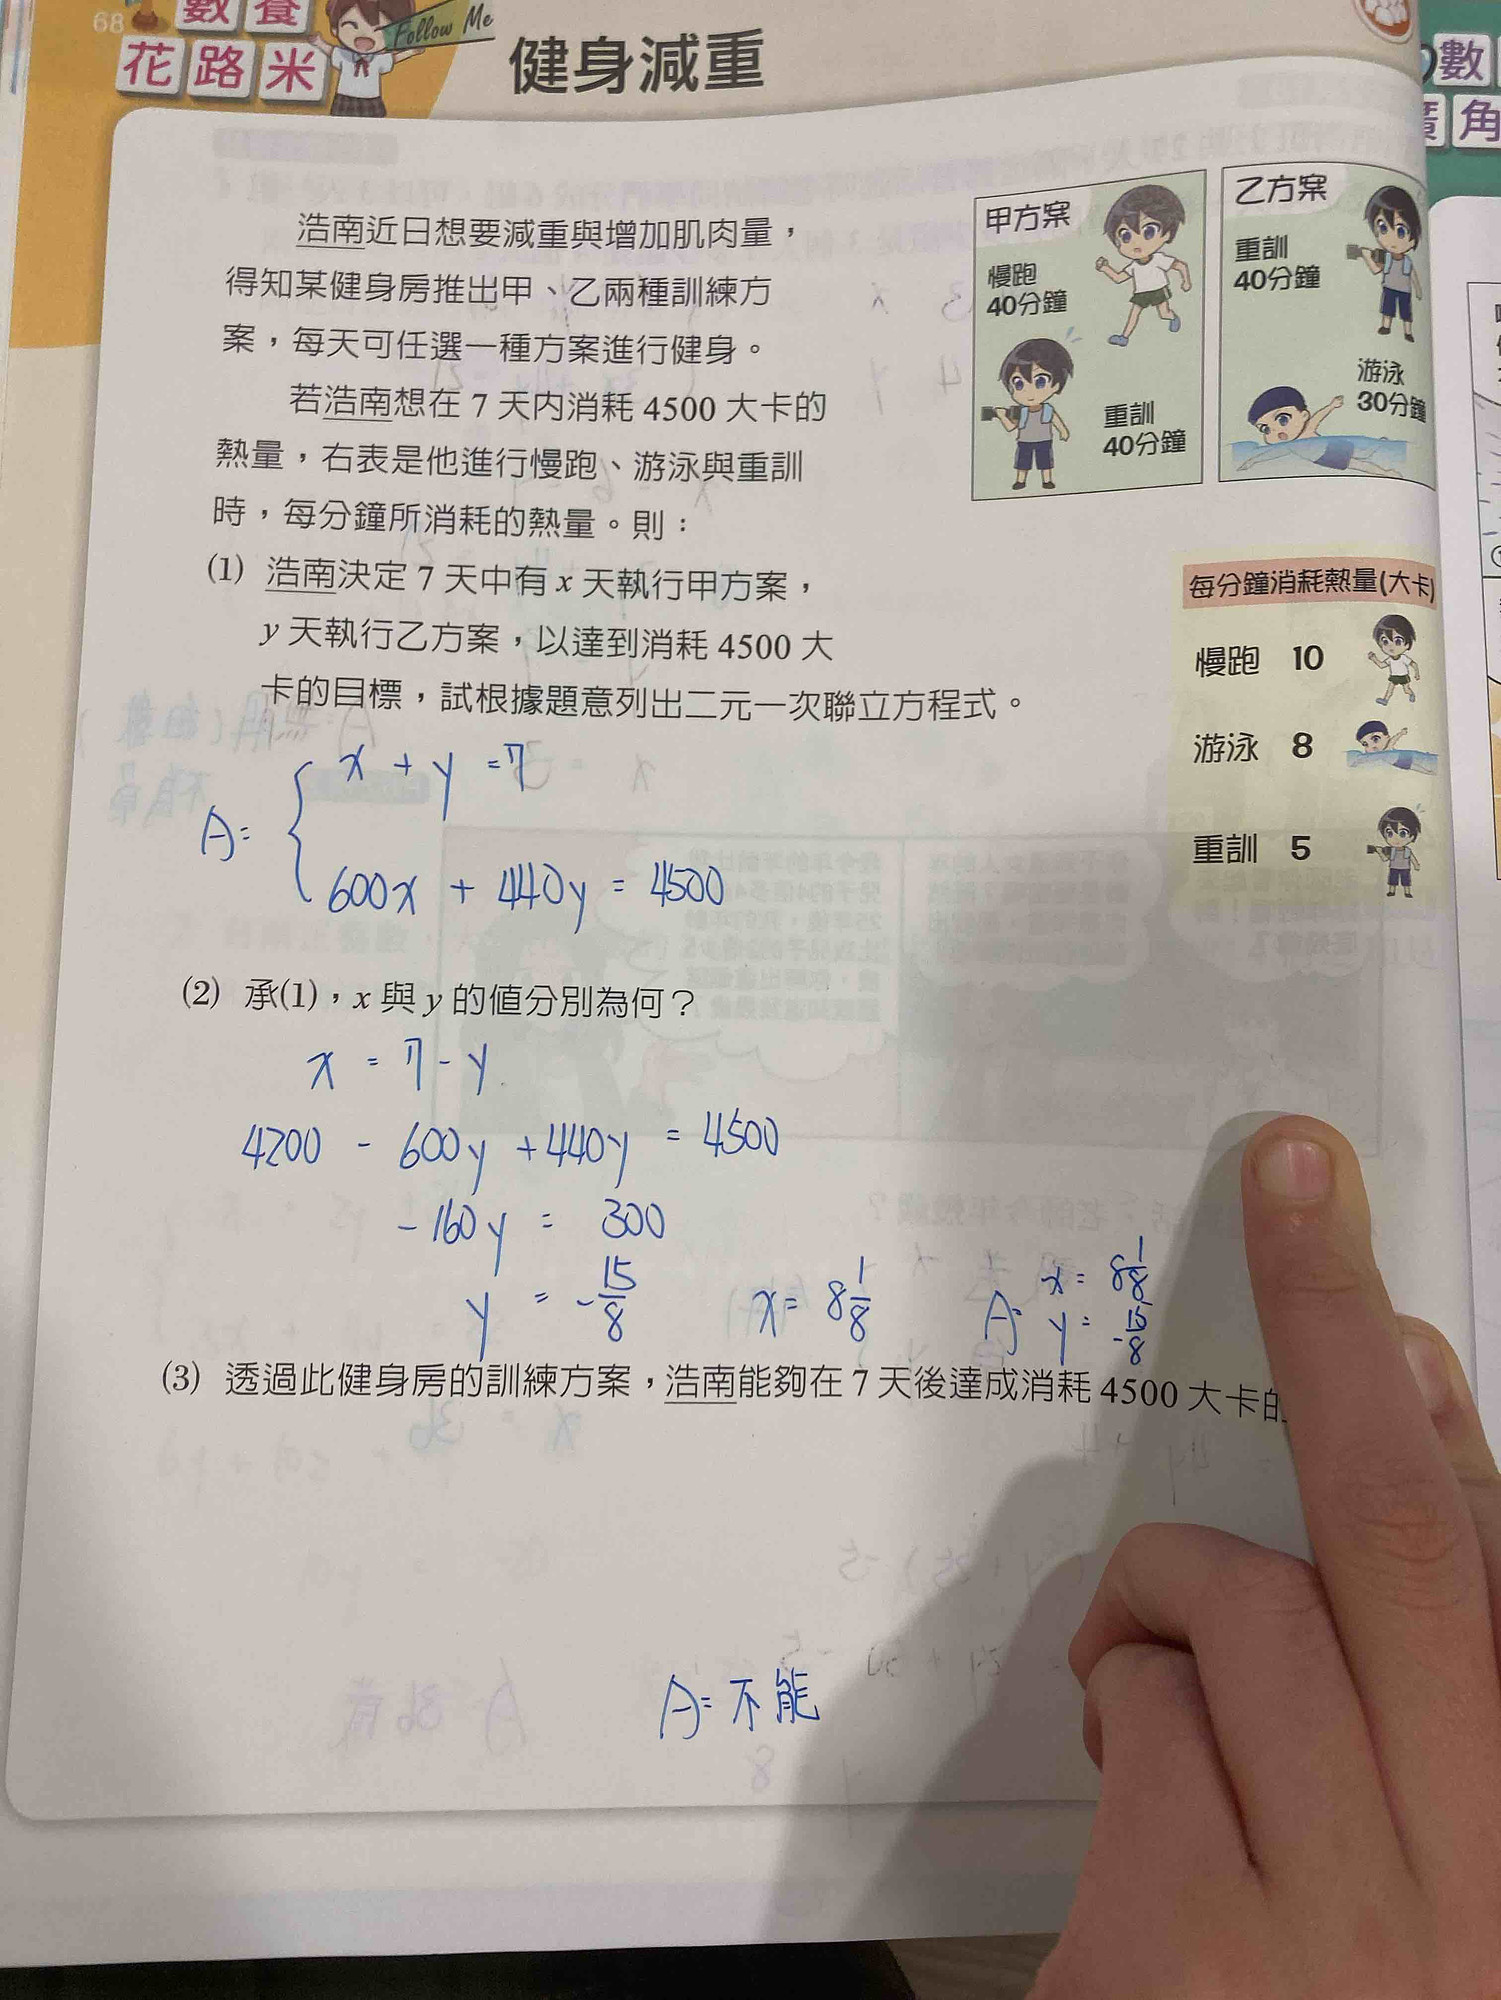 68
數養
花路米
Follow Me
健身減重
數
角
浩南近日想要減重與增加肌肉量，
得知某健身房推出甲、乙兩種訓練方
案，每天可任選一種方案進行健身。
若浩南想在 7 天內消耗 4500 大卡的
熱量，右表是他進行慢跑、游泳與重訓
時，每分鐘所消耗的熱量。則：
甲方案
慢跑
40分鐘
重訓
40分鐘
乙方案
重訓
40分鐘
游泳
30分鐘
(1) 浩南決定 7 天中有 x 天執行甲方案，
y 天執行乙方案，以達到消耗 4500 大
卡的目標，試根據題意列出二元一次聯立方程式。
每分鐘消耗熱量(大卡)
慢跑 10
游泳 8
重訓 5
x + y = 7
A=
600x + 440y = 4500
(2) 承(1)，x 與 y 的值分別為何？
x = 7 - y
4200 - 600y + 440y = 4500
-160y = 300
y = -15/8 x = 8 1/8
A= x = 8 1/8
y = -15/8
(3) 透過此健身房的訓練方案，浩南能夠在 7 天後達成消耗 4500 大卡的
A= 不能